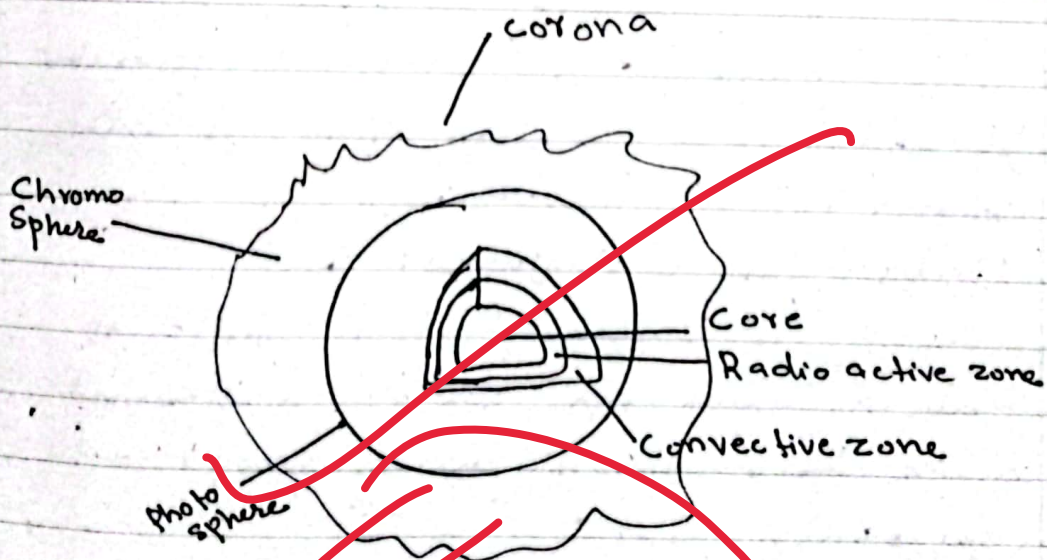 corona
Chromo
Sphere
Core
Radio active zone
Convective zone
Photo
sphere